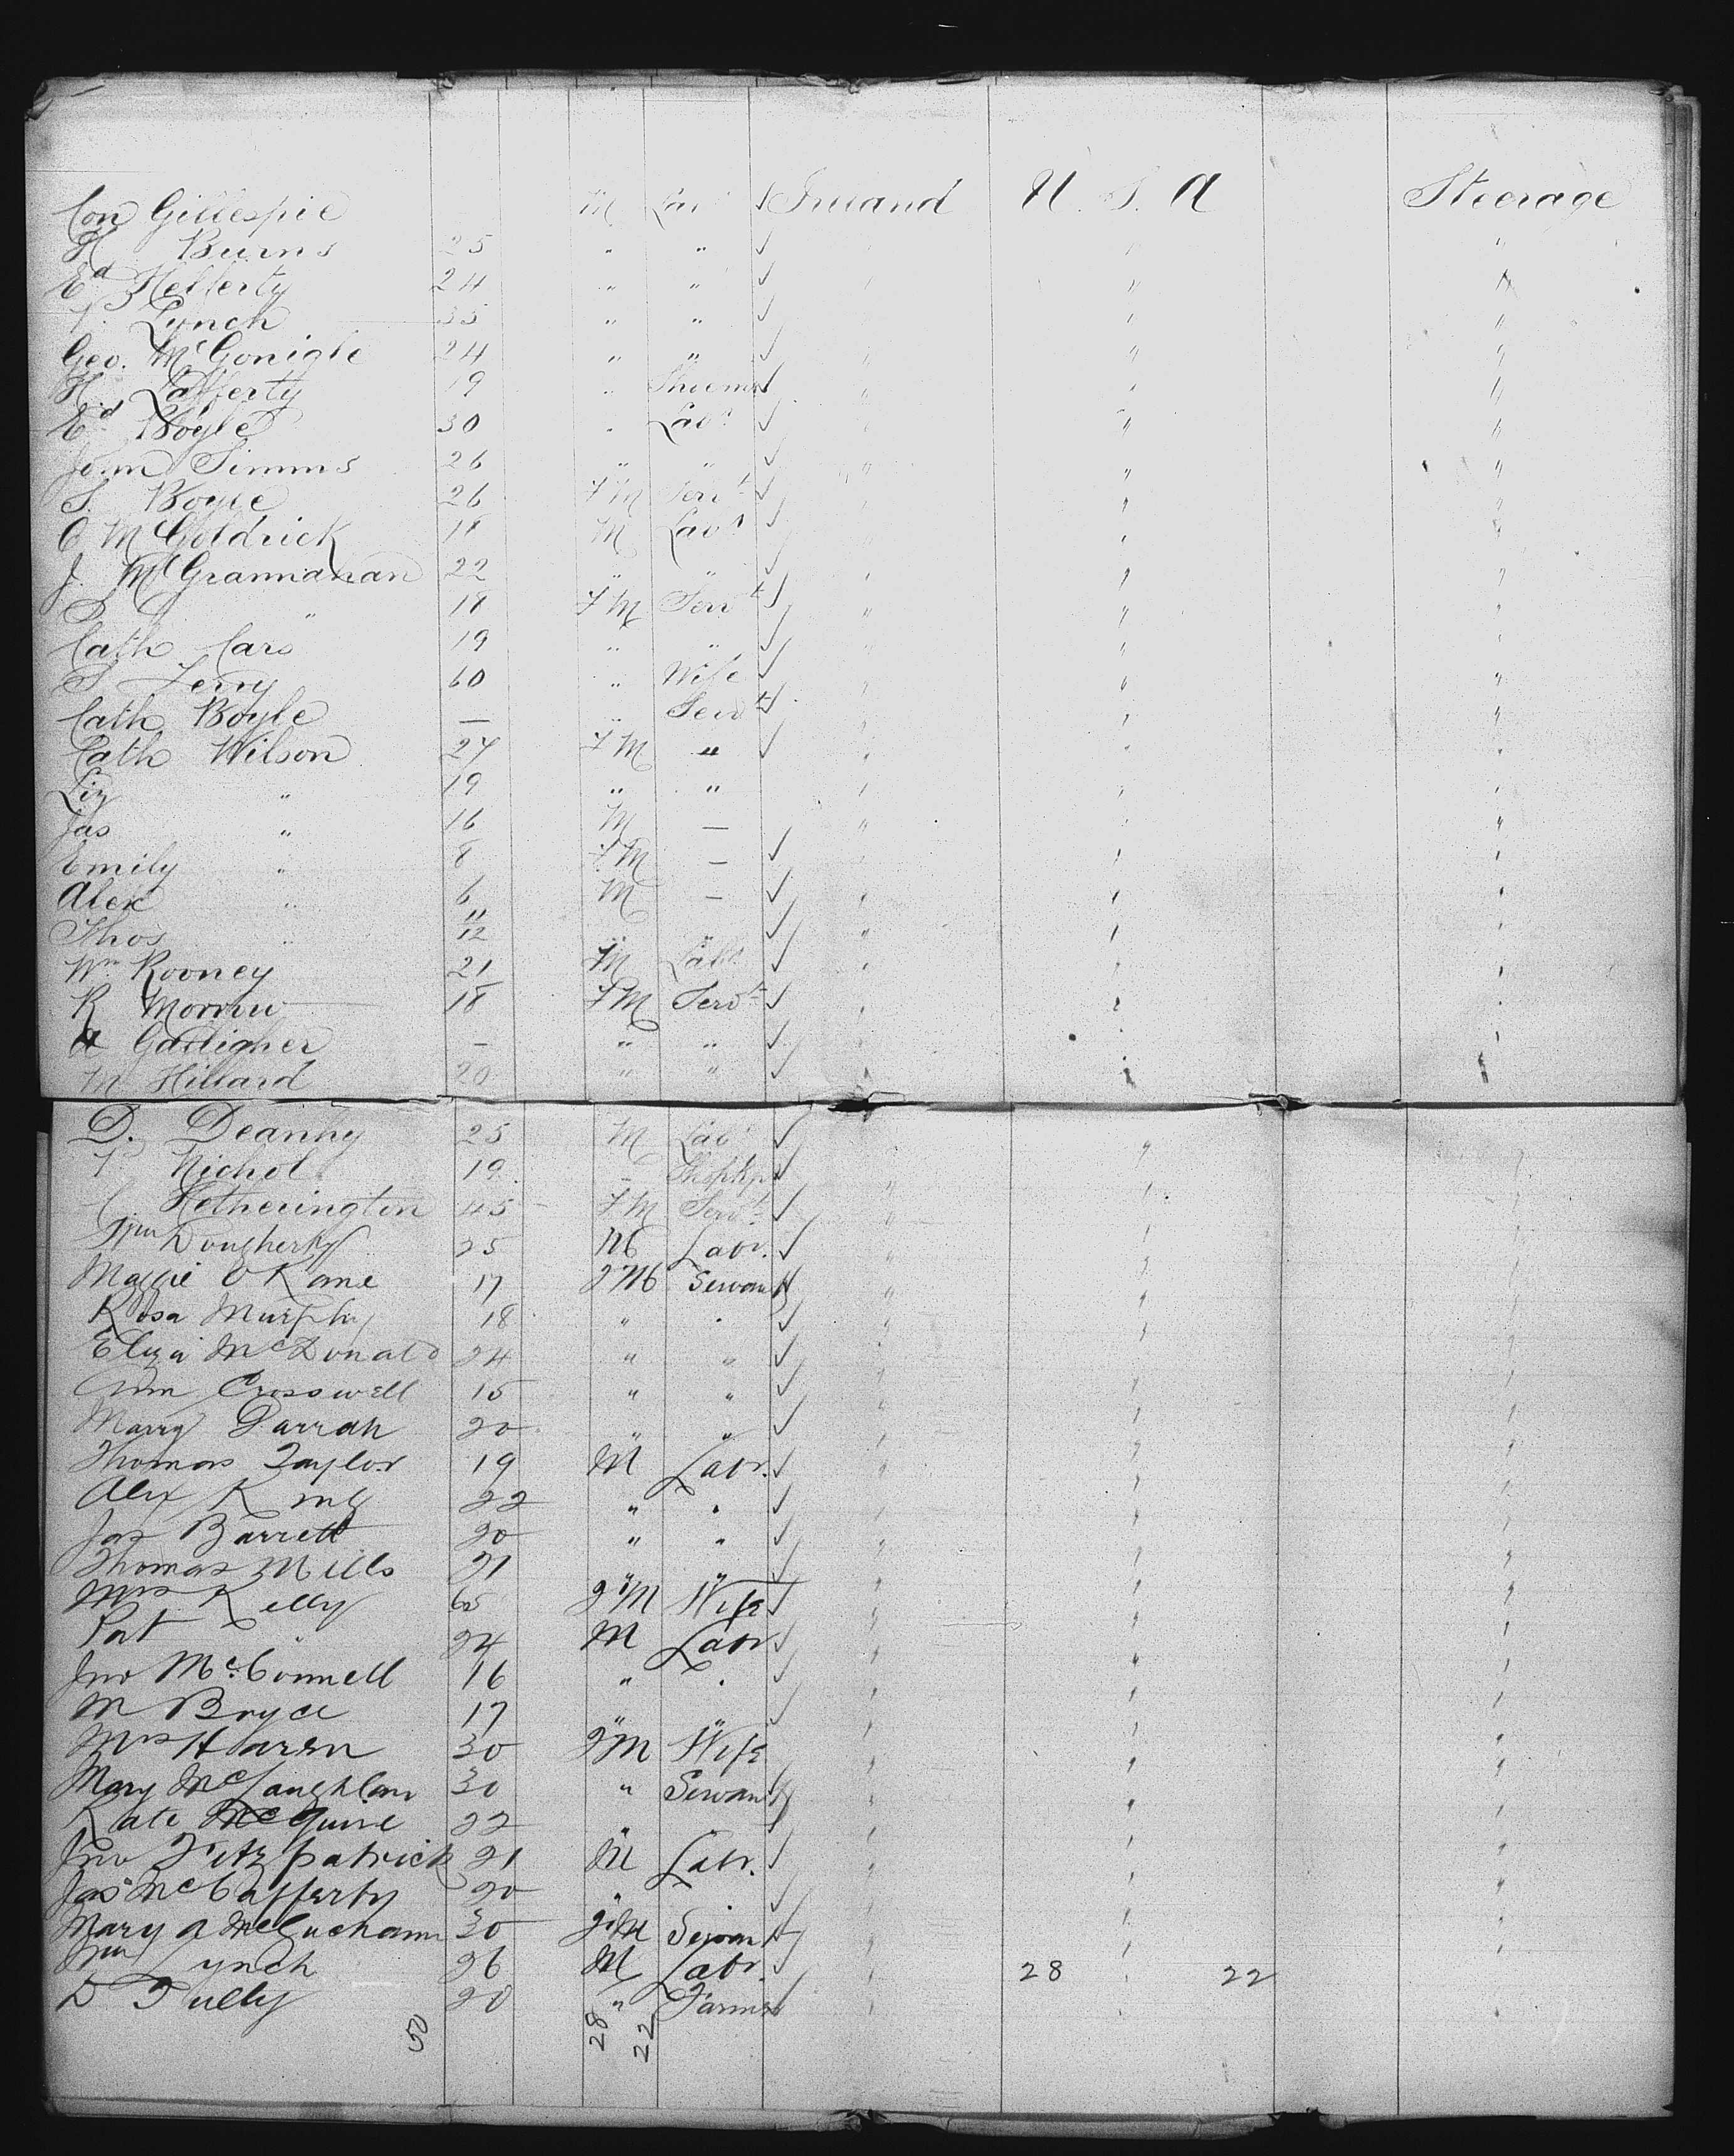 Con Gillespie M Labr ✓ Ireland U. S. A Steerage
H Burns 25 " " ✓ " " "
Ed Hefferty 24 " " ✓ " " "
T. Lynch 35 " " ✓ " " "
Geo. McGonigle 24 " " ✓ " " "
H. Lafferty 19 " ✓ " " "
Ed Boyle 30 " Labr ✓ " " "
John Simms 26 " " ✓ " " "
S. Boyle 26 FM Servt ✓ " " "
C McGoldrick 18 M Labr ✓ " " "
J. McGrannahan 22 " " ✓ " " "
S. " 18 FM Servt ✓ " " "
Cath Cars 19 " " ✓ " " "
S Ferry 60 " Wife ✓ " " "
Cath Boyle — " Servt ✓ " " "
Cath Wilson 27 FM " ✓ " " "
Liz " 19 " " " " "
Jas " 16 M — " " "
Emily " 8 FM — ✓ " " "
Alex " 6 M — ✓ " " "
Thos " 11/12 " " ✓ " " "
Wm Rooney 21 M Labr ✓ " " "
R Morrow 18 FM Servt ✓ " " "
A Galligher — " " ✓ " " "
M Hillard 20 " " ✓ " " "
D. Deanny 25 M Labr ✓ " " "
T Nichol 19 — Shopkpr ✓ " " "
C Hetherington 45 FM Servt ✓ " " "
Wm Dougherty 25 M Labr. ✓ " " "
Maggie O Kane 17 FM Servant ✓ " " "
Rosa Murphy 18 " " ✓ " " "
Eliza McDonald 24 " " ✓ " " "
Ann Crosswell 15 " " ✓ " " "
Marry Darrah 20 " " ✓ " " "
Thomas Taylor 19 M Labr. ✓ " " "
Alex King 22 " " ✓ " " "
Jas Barrett 20 " " ✓ " " "
Thomas Mills 21 " " ✓ " " "
Mrs Kelly 65 FM Wife ✓ " " "
Pat " 24 M Labr ✓ " " "
Jno McConnell 16 " " ✓ " " "
M Bryce 17 " " ✓ " " "
Mrs Haren 30 FM Wife " " "
Mary McLaughlan 30 " Servant ✓ " " "
Kate McGuire 22 " " ✓ " " "
Jno Fitzpatrick 21 M Labr. ✓ " " "
Jas McCafferty 20 " " ✓ " " "
Mary A McEuchann 30 FM Servant ✓ " " "
Wm Lynch 26 M Labr. ✓ " 28 " 22 "
D Tully 20 " Farmer ✓ " " "
50 28 22